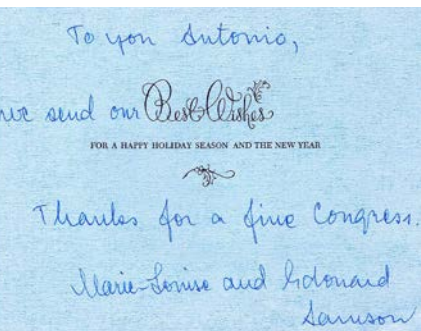 To you Antonio,
we send our Best Wishes
FOR A HAPPY HOLIDAY SEASON AND THE NEW YEAR
Thanks for a fine Congress.
Marie-Louise and Edouard
Samson